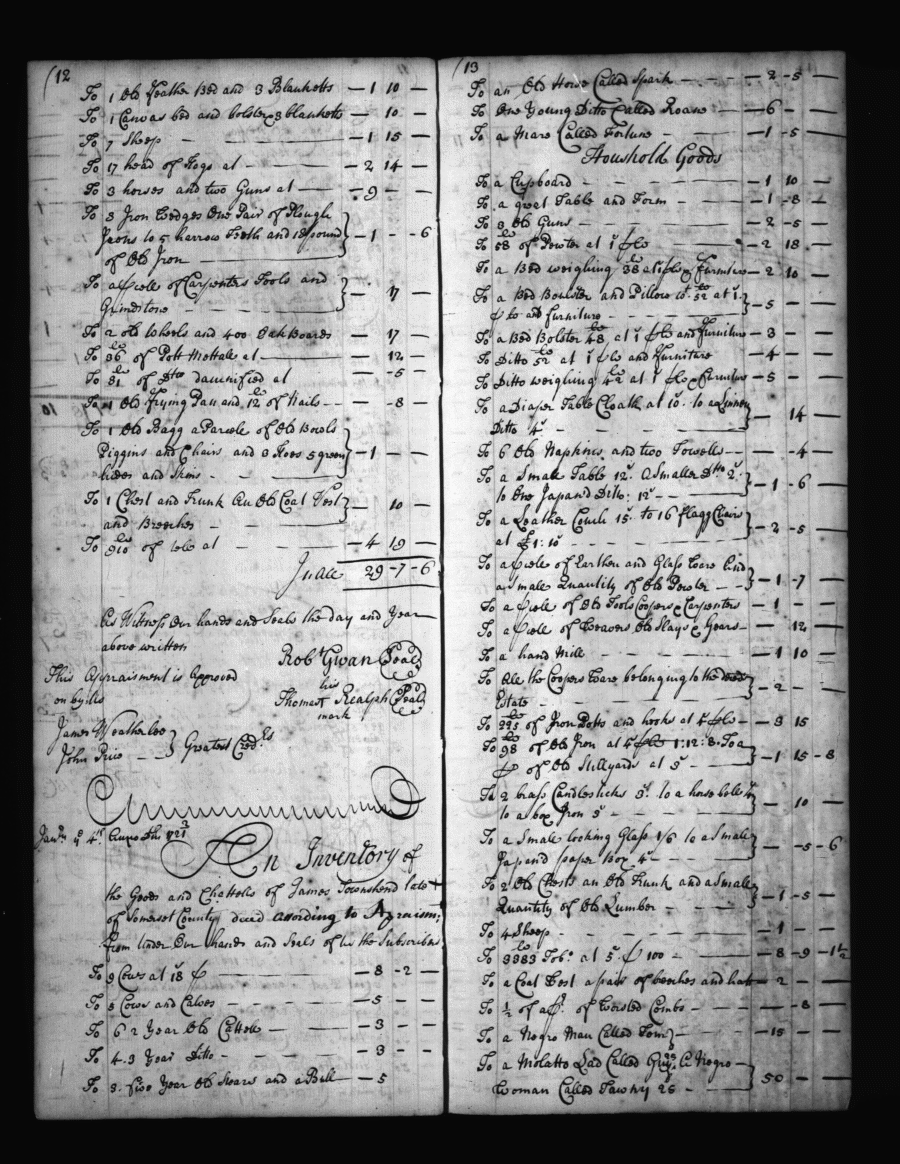 (12
To 1 Old Feather Bed and 3 Blanketts — 1 10 —
To 1 Canvas bed and bolster & 3 blanketts — 10 —
To 7 Sheep — 1 15
To 17 head of Hogs at — 2 14 —
To 3 horses and two Guns at — 9 — —
To 3 Iron Wedges One Pair of Plough
Irons to 5 harrow Teeth and 18 pound
of Old Iron — 1 - - 6
To a Pcele of Carpenters Tools and
Grindstone — 17 —
To 2 old Wheels and 400 Oak Boards — 17 —
To 36 lb of Pott Mettale at — 12 —
To 31 lb of Dto damnified at — -5 —
To 1 Old Frying Pan and 12 lb of Nails — -8 —
To 1 Old Bagg a Parcele of Old Bowls
Piggins and Chairs and 3 Hoes 5 green
hides and Skins — 1 — —
To 1 Chest and Trunk An Old Coat Vest
and Breeches — 10 —
To 910 lb of tobo at — 4 19 —
In All 29 -7 -6
As Witness Our hands and Seals the day and Year
above written
Robt Gwan Seal
his
Thomas Realph Seal
mark
This Appraisment is Approved
on by us
James Weatherloe
John Price
Greatest Credrs
Janry ye 4th Anno Dni 1721/3
An Inventory of
the Goods and Chattels of James Townshend late
of Somerset County deced according to Apraism:
from Under Our hands and Seals of Us the Subscribers
To 9 Cows at 18s p — 8 -2 —
To 5 Cows and Calves — 5 —
To 6 2 Year Old Cattell — 3 —
To 4 - 3 Year Ditto — 3 — —
To 3 - five Year Old Stears and a Bull — 5
(13
To an Old Horse Called Spark — 2 -5 —
To One Young Ditto Called Roane — 6 — —
To a Mare Called Fortune — 1 -5 —
Houshold Goods
To a Cupboard — 1 10 —
To a great Table and Form — 1 -8 —
To 3 Old Guns — 2 -5 —
To 58 lb of Pewter at 1s p lb — 2 18 —
To a Bed weighing 38 lb at 1s p lb & Furniture — 2 10 —
To a Bed Boulster and Pillow wt 52 lb at 1s
p to and furniture — 5 — —
To a Bed Bolster 48 lb at 1s p lb and Furniture — 3 —
To Ditto 52 lb at 1s p lb and Furniture — 4 — —
To Ditto weighing 42 lb at 1s p lb & Furniture — 5 —
To a Diaper Table Cloath at 10s. to a Linnen
Ditto 4s — 14 —
To 6 Old Napkins and two Towells — -4 —
To a Small Table 12s. A Smaller Dto 2s
to One Japan'd Ditto: 12s — 1 -6 —
To a Leather Couch 15s. to 16 flagg Chairs
at £1:10 — 2 -5 —
To a Pcele of Earthen and Glass Ware And
a small Quantity of Old Pewter — 1 -7 —
To a Pcele of Old Tools Coopers & Carpenters — 1 — —
To a Pcele of Weavers Old Slays & Gears — 12 —
To a hand Mill — 1 10 —
To Ale the Coopers Ware belonging to the
Estate — 2 — —
To 225 lb of Iron Potts and hooks at 4d p lb — 3 15
To 98 lb of Old Iron at 4d p lb 1:12:8. To a
p of Old Stillyards at 3s — 1 15 -8
To 2 brass Candlesticks 3s. to a horse bole
to a box Iron 5s — 10 —
To a Small looking Glass 1/6 to a Small
Japan'd paper Box 4s — -5 -6
To 2 Old Chests an Old Trunk and a Small
Quantity of Old Lumber — 1 -5 —
To 4 Sheep — 1 — —
To 3383 lb Tobo. at 5s p 100 — 8 -9 -1½
To a Coat Vest a pair of breeches and hatt — 2 — —
To ½ of a Pr of Worsted Combs — -8 —
To a Negro Man Called Tom — 15 — —
To a Molatto Lad Called Guy, A Negro
Woman Called Tawny 26 — 50 — —